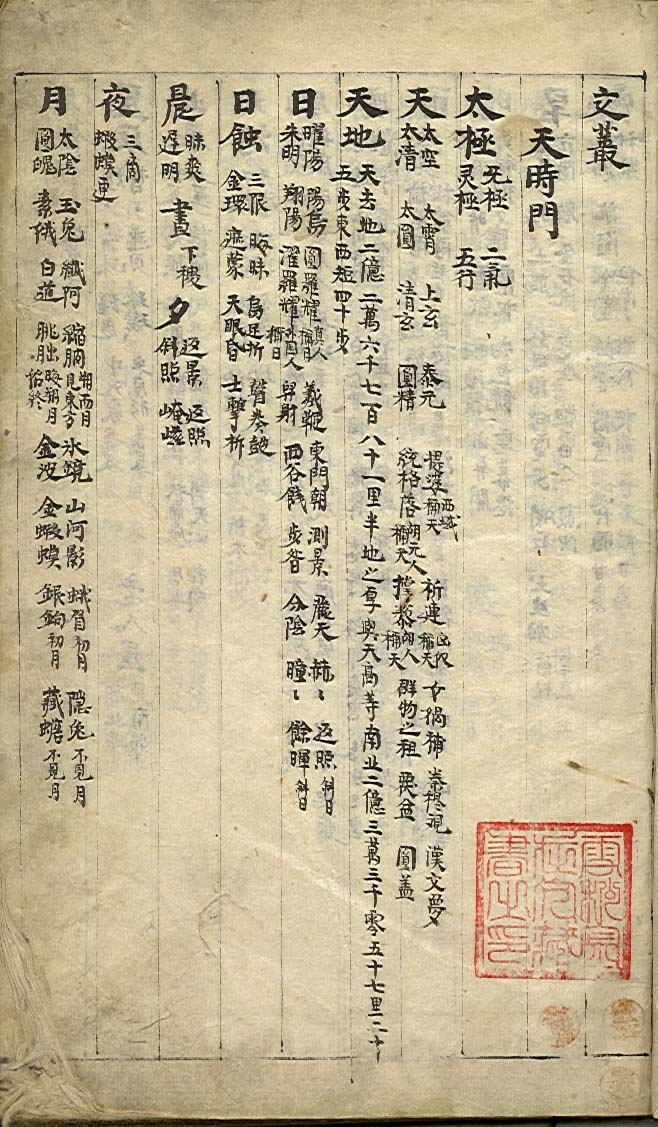 文叢
天時門
太極 无極 二氣
灵極 五行
天 太空 太霄 上玄 泰元 提婆 西域稱天 祈連 匈奴稱天 女禍補 秦穆覌 漢文夢
太清 太圓 清玄 圓精 統格落 胡元人稱天 撑梨 胡人稱天 群物之祖 戾盆 圓盖
天地 天去地二億二萬六千七百八十一里半地之厚與天高等南北二億三萬三千零五十七里二十
五步東西短四十步
日 曜陽 陽烏 圓羅耀 真人稱日 羲鞭 東門朝 測景 麗天 赫〻 返照 斜日
朱明 翔陽 濯羅耀 外國人稱日 羿射 西谷餞 步晷 分陰 曈〻 餘暉 斜日
日蝕 三限 晦昧 烏足折 瞽奏皷
金環 遮蒙 天眼昏 士擊柝
晨 昧爽
遅明
晝 下稷
夕 返景 返照
斜照 崦嵫
夜 三商
蝦蟆更
月 太陰 玉兔 纖阿 縮朒 朔而月見東方 氷鏡 山河影 蛾眉 初月 隱兔 不見月
圓魄 素娥 白道 朓朏 金波 金蝦蟆 銀鉤 初月 藏蟾 不見月